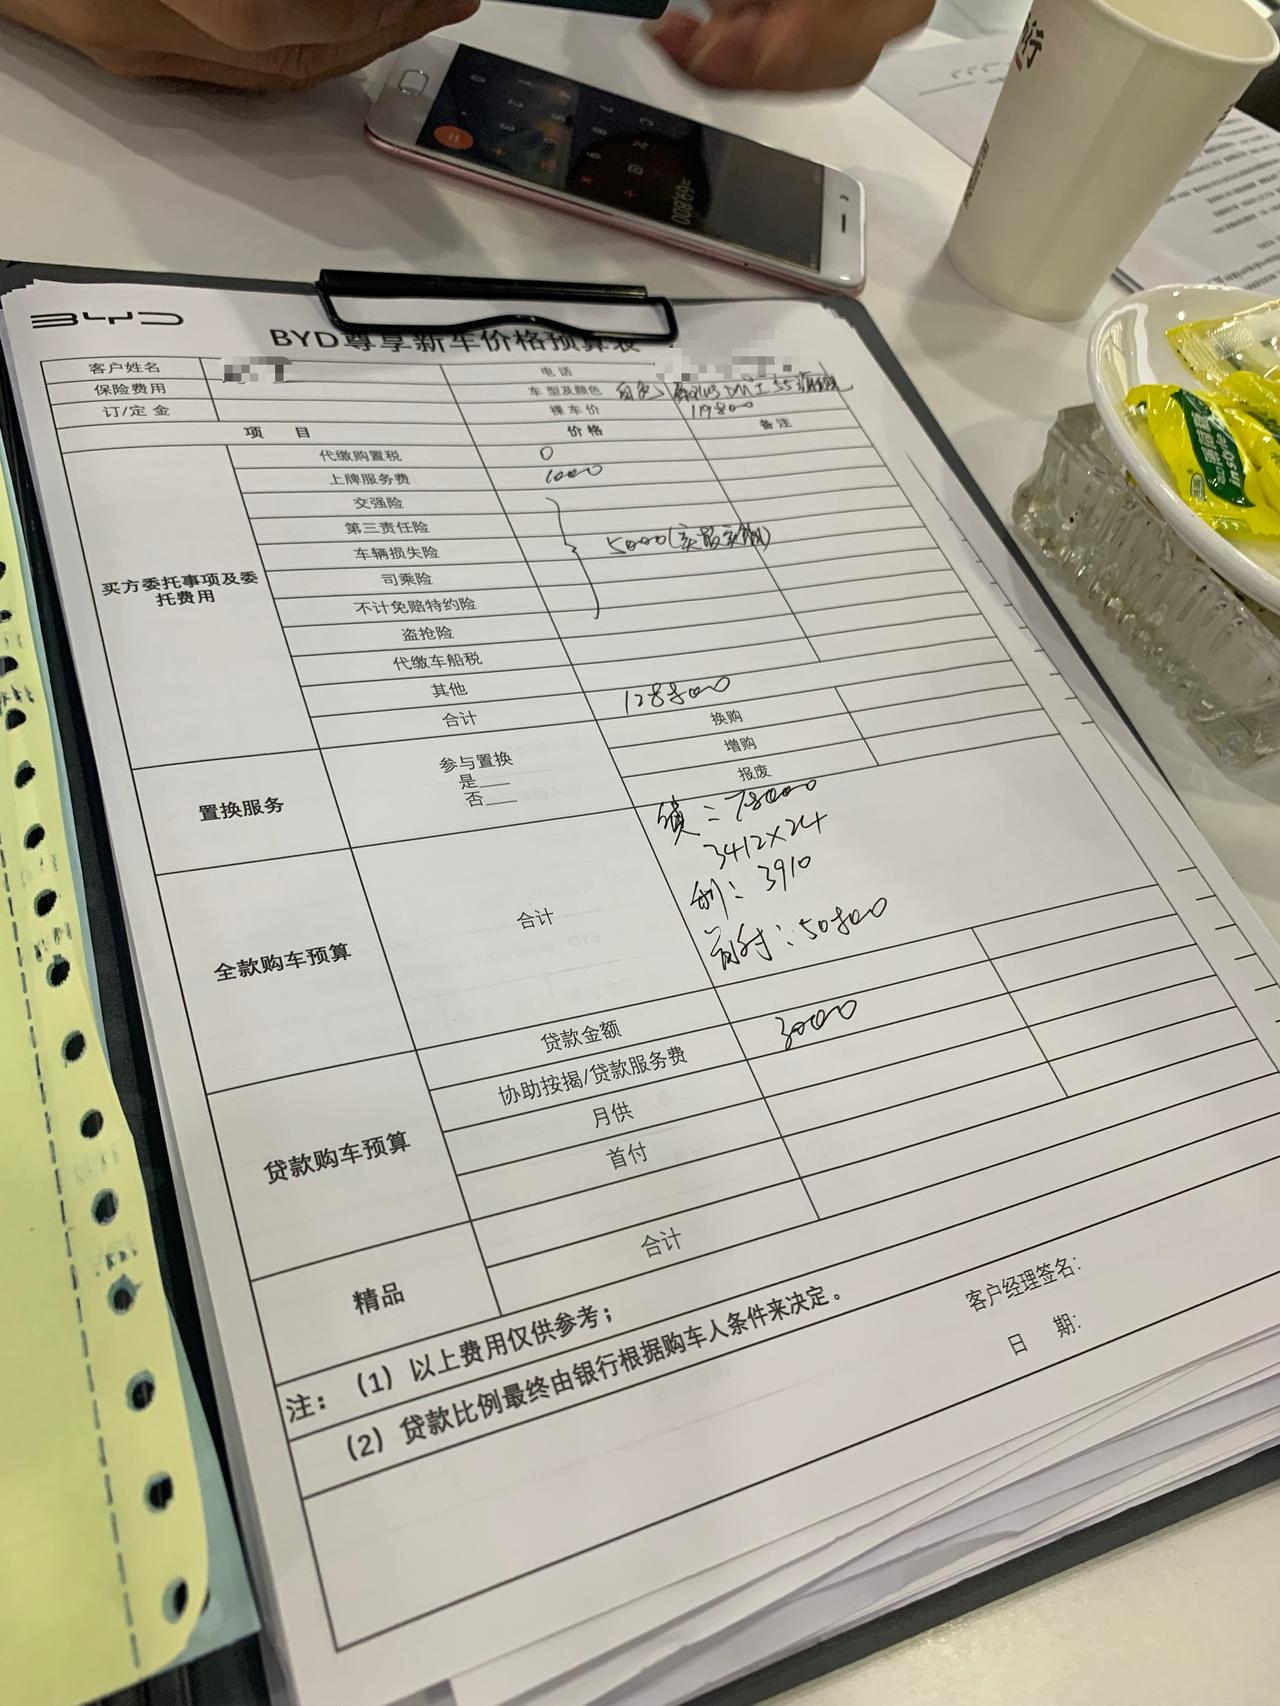 =69,800
BYD
BYD尊享新车价格预算表
客户姓名 电话
保险费用 车型及颜色 白色
订/定金 裸车价 119800
项 目 价格 备注
买方委托事项及委托费用
代缴购置税 0
上牌服务费 1000
交强险
第三责任险
车辆损失险 5000(实报实销)
司乘险
不计免赔特约险
盗抢险
代缴车船税
其他
合计 128800
置换服务
参与置换
是___
否___
换购
增购
报废
全款购车预算 合计
78000
3412×24
利:3910
首付:50800
贷款购车预算
贷款金额
协助按揭/贷款服务费 3000
月供
首付
精品
合计
注:(1)以上费用仅供参考;
(2)贷款比例最终由银行根据购车人条件来决定。
客户经理签名:
日 期: